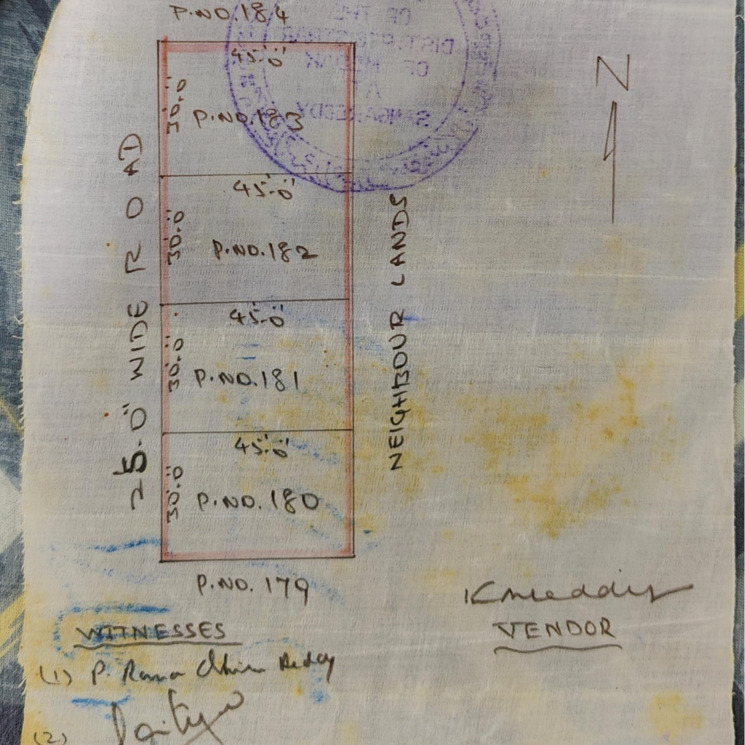 P.NO.184
45'-0"
30'-0"
P.NO.183
N
45'-0"
30'-0"
P.NO.182
45'-0"
30'-0"
P.NO.181
45'-0"
30'-0"
P.NO.180
25'-0" WIDE ROAD
NEIGHBOUR LANDS
P.NO. 179
OF THE
DIST. REGISTRAR
OF MEDAK
SANGAREDDY
VENDOR
WITNESSES
(1) P. Rama Reddy
(2)